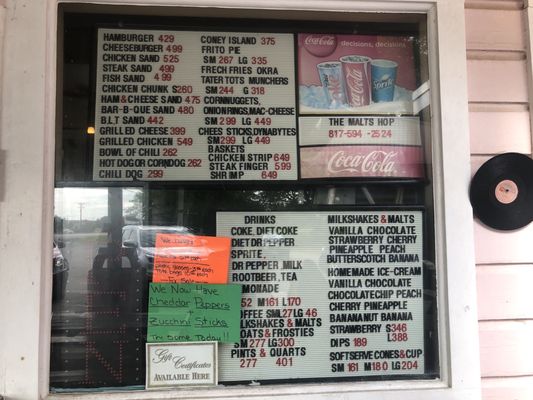 HAMBURGER 429
CHEESEBURGER 499
CHICKEN SAND 525
STEAK SAND 499
FISH SAND 4 99
CHICKEN CHUNK S260
HAM&CHEESE SAND 475
BAR-B-QUE SAND 480
B.L.T SAND 442
GRILLED CHEESE 399
GRILLED CHICKEN 549
BOWL OF CHILI 262
HOTDOG OR CORNDOG 262
CHILI DOG 299
CONEY ISLAND 375
FRITO PIE
SM 267 LG 335
FRECH FRIES OKRA
TATER TOTS MUNCHERS
SM 244 G 318
CORNNUGGETS,
ONION RINGS, MAC-CHEESE
SM 299 LG 449
CHEES STICKS,DYNABYTES
SM 299 LG 449
BASKETS
CHICKEN STRIP 649
STEAK FINGER 599
SHRIMP 649
Coca-Cola
decisions, decisions.
Coca-Cola
Sprite
THE MALTS HOP
817-594 -2524
Coca-Cola
DRINKS
COKE, DIET COKE
DIET DR PEPPER
SPRITE,
DR PEPPER ,MILK
ROOTBEER, TEA
MONADE
52 M161 L170
COFFEE SML 27 LG 46
MILKSHAKES & MALTS
OATS & FROSTIES
SM 277 LG 300
PINTS & QUARTS
277 401
MILKSHAKES & MALTS
VANILLA CHOCOLATE
STRAWBERRY CHERRY
PINEAPPLE PEACH
BUTTERSCOTCH BANANA
HOMEMADE ICE-CREAM
VANILLA CHOCOLATE
CHOCOLATECHIP PEACH
CHERRY PINEAPPLE
BANANANUT BANANA
STRAWBERRY S346
DIPS 189 L388
SOFTSERVE CONES & CUP
SM 161 M180 LG 204
For Sale
We Now Have
Cheddar Peppers
+
Zucchini Sticks
Try Some Today!!
Gift
Certificates
AVAILABLE HERE